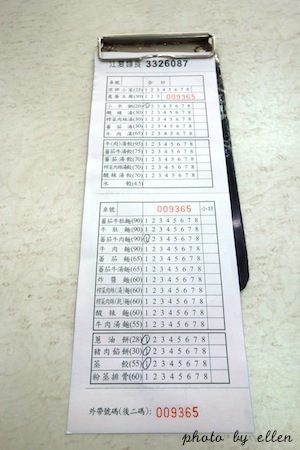 江蘇
3326087
桌號 合計
涼拌小菜(25) 1 2 3 4 5 6 7 8
009365
小米粥(20) 1 2 3 4 5 6 7 8
酸辣湯(30) 1 2 3 4 5 6 7 8
榨菜肉絲湯(30) 1 2 3 4 5 6 7 8
蕃茄湯(30) 1 2 3 4 5 6 7 8
牛肉湯(65) 1 2 3 4 5 6 7 8
牛(肉)湯餃(95) 1 2 3 4 5 6 7 8
蕃茄牛湯餃(75) 1 2 3 4 5 6 7 8
蕃茄湯餃(70) 1 2 3 4 5 6 7 8
榨菜肉絲湯餃(70) 1 2 3 4 5 6 7 8
酸辣湯餃(70) 1 2 3 4 5 6 7 8
水餃(4.5)
桌號 009365 小計
蕃茄牛肚麵(90) 1 2 3 4 5 6 7 8
牛肚麵(90) 1 2 3 4 5 6 7 8
蕃茄牛肉麵(90) 1 2 3 4 5 6 7 8
牛肉麵(90) 1 2 3 4 5 6 7 8
蕃茄麵(55) 1 2 3 4 5 6 7 8
蕃茄牛湯麵(65) 1 2 3 4 5 6 7 8
炸醬麵(60) 1 2 3 4 5 6 7 8
榨菜肉絲(湯)麵(60) 1 2 3 4 5 6 7 8
榨菜肉絲(乾)麵(60) 1 2 3 4 5 6 7 8
酸辣麵(60) 1 2 3 4 5 6 7 8
牛肉湯麵(55) 1 2 3 4 5 6 7 8
蔥油餅(28) 1 2 3 4 5 6 7 8
豬肉餡餅(30) 1 2 3 4 5 6 7 8
蒸餃(55) 1 2 3 4 5 6 7 8
粉蒸排骨(60) 1 2 3 4 5 6 7 8
外帶號碼(後二碼): 009365
photo by ellen